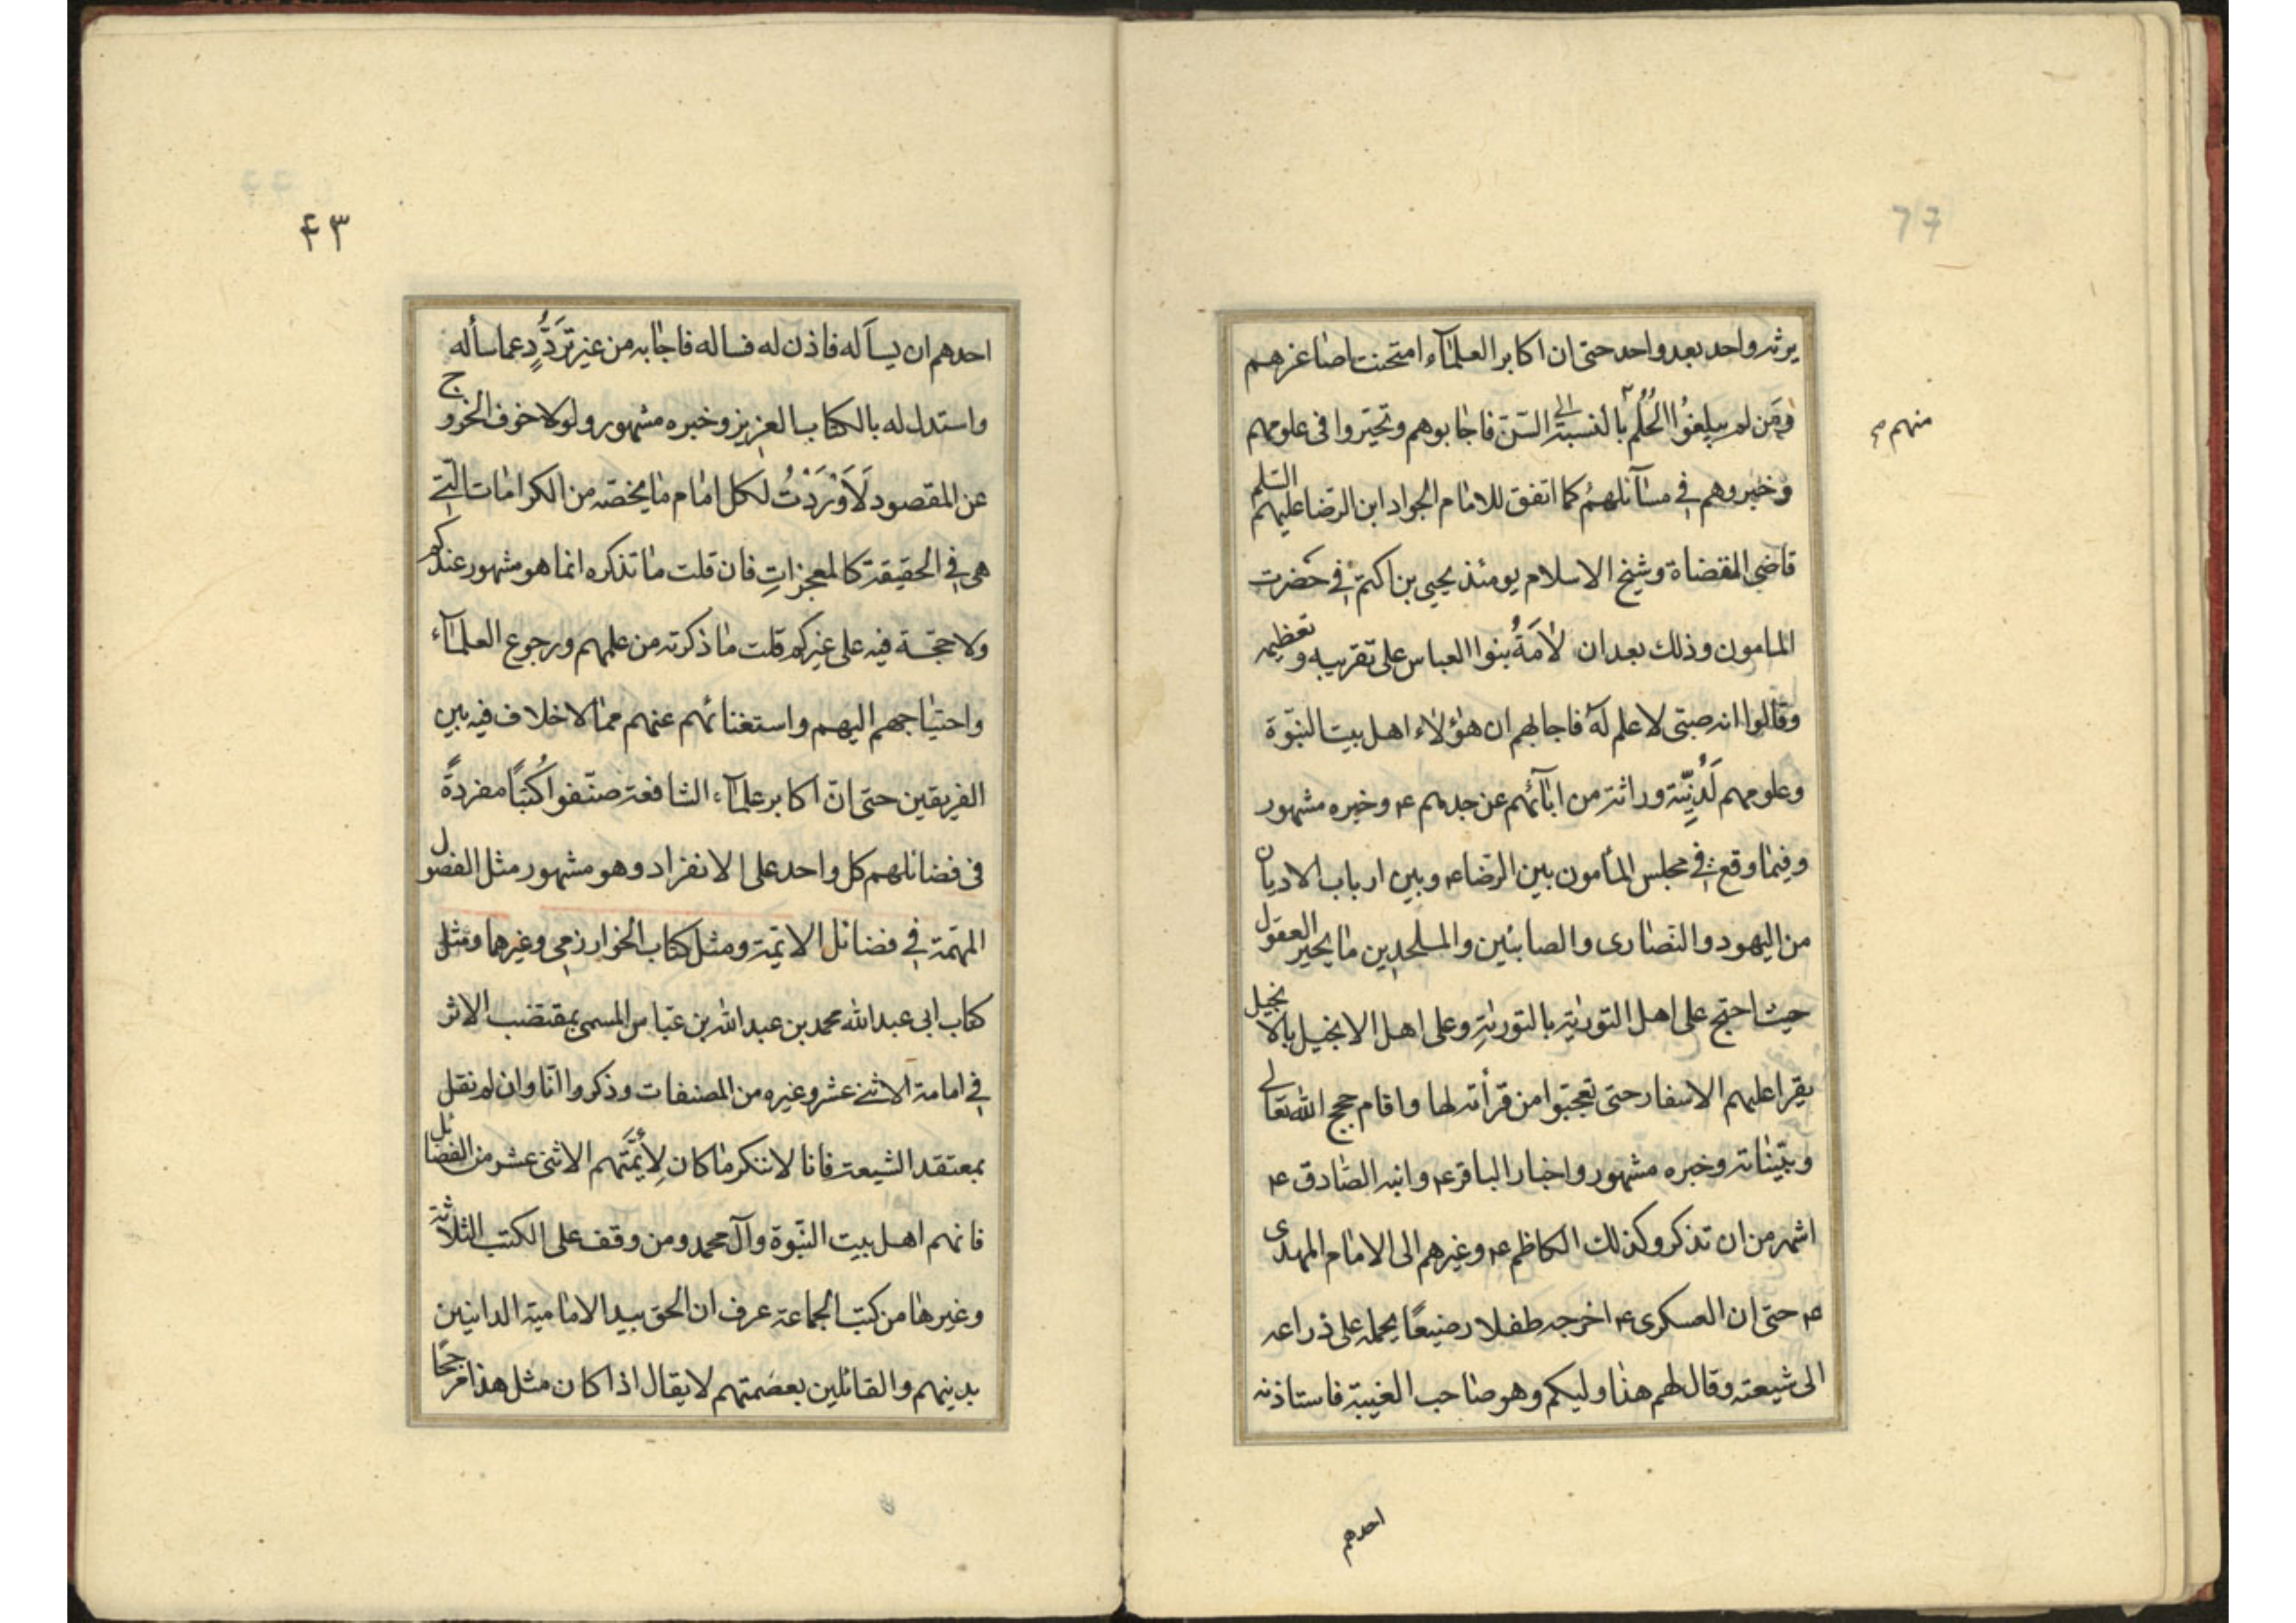 يرثه واحد بعد واحد حتى ان اكابر العلمآء امتحنت اصاغرهم
ومن لم يبلغوا الحُلُم بالنسبة الى السّن فاجابوهم وتحيّروا فى علومهم
منهم
وخبروهم فى مسآئلهم كما اتفق للامام الجواد ابن الرّضا عليهم السّلم
قاضى المقضاة وشيخ الاسلام يومئذ يحيى بن اكثم فى حضرت
المامون وذلك بعد ان لامَهُ بنوا العباس على تقريبه وتعظيمه
وقالوا انه صبىّ لا علم له فاجابهم ان هؤلاء اهل بيت النبّوة
وعلومهم لَدُنِيّة وراثة من ابآئهم عن جدهم ع وخبره مشهور
وفيما وقع فى مجلس المأمون بين الرّضا ع وبين ارباب الاديان
من اليهود والنصارى والصابئين والملحدين ما يحير العقول
حيث احتج على اهل التورية بالتوريةِ وعلى اهل الانجيل بالانجيل
يقرا عليهم الاسفار حتى تعجبّوا من قرأته لها واقام حجج الله تعالى
وبيّناته وخبره مشهور واخبار الباقر ع وابنه الصّادق ع
اشهر من ان تذكر وكذلك الكاظم ع وغيرهم الى الامام المهدى
ع حتى ان العسكرى ع اخرجه طفلا رضيعًا يحمله على ذراعه
الى شيعته وقال لهم هذا وليكم وهو صاحب الغيبة فاستاذنه
احدهم
۴۳
احدهم ان يسآله فاذن له فساله فاجابه من غير تَرَدُّدٍ عما سأله
واستدل له بالكتاب العزيز وخبره مشهور ولولا خوف الخروج
عن المقصود لَاَوْرَدْتُ لكل امام ما يخصّه من الكرامات الّتى
هى فى الحقيقة كالمعجزاتِ فان قلت ما تذكره انما هو مشهور عندكم
ولا حجّة فيه على غيركم قلت ما ذكرته من علمهم ورجوع العلمآء
واحتياجهم اليهم واستغنائهم عنهم مما لا خلاف فيه بين
الفريقين حتى انّ اكابر علمآء الشافعة صنّفوا كُتبًا مفردةً
فى فضائلهم كل واحد على الانفراد وهو مشهور مثل الفصول
المهّمة فى فضائل الائمّة ومثل كتاب الخوارزمى وغيرهما ومثل
كتاب ابى عبد الله محمد بن عبد الله بن عبّاس المسمى بمقتضب الاثر
فى امامة الاثنى عشر وغيره من المصنفات وذكروا انّا وان لم نقل
بمعتقد الشيعة فانا لا ننكر ما كان لِأئمَّتهم الاثنى عشر من الفضائل
فانهم اهل بيت النبّوة وآل محمد ومن وقف على الكتب الثلاثة
وغيرها من كتب الجماعة عرف ان الحق بيد الامامية الدانيين
بدينهم والقائلين بعصمتهم لا يقال اذا كان مثل هذا مرجحًا